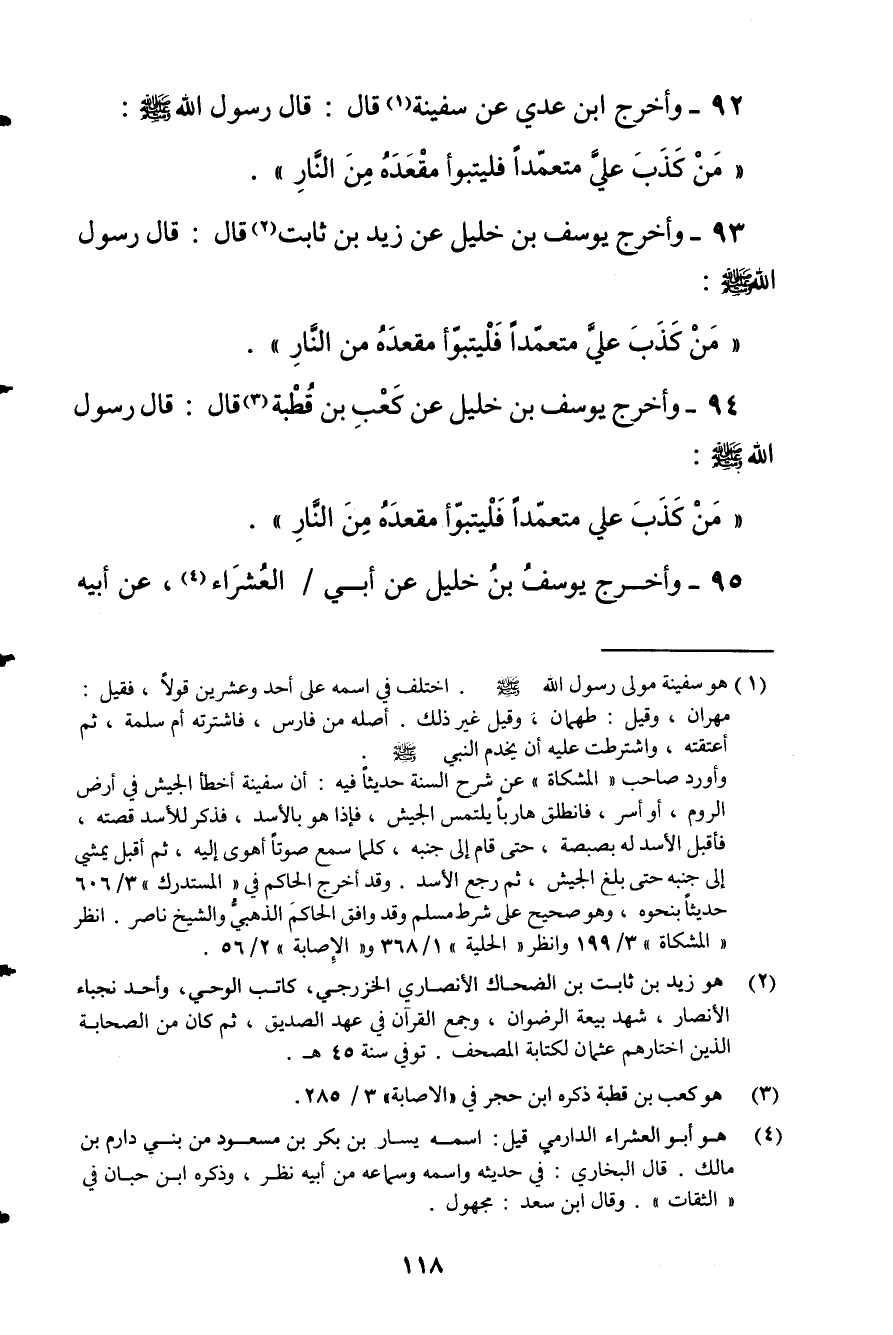 ٩٢ - وأخرج ابن عدي عن سفينة(١) قال : قال رسول الله ﷺ :
« مَنْ كَذَبَ عليَّ متعمّداً فليتبوأ مقْعَدَهُ مِنَ النَّارِ » .
٩٣ - وأخرج يوسف بن خليل عن زيد بن ثابت(٢) قال : قال رسول
الله ﷺ :
« مَنْ كَذَبَ عليَّ متعمّداً فَلْيتبوّأ مقعدَهُ من النَّارِ » .
٩٤ - وأخرج يوسف بن خليل عن كَعْبِ بن قُطْبة(٣) قال : قال رسول
الله ﷺ :
« مَنْ كَذَبَ علي متعمّداً فَلْيتبوّأ مقعدَهُ مِنَ النَّارِ » .
٩٥ - وأخرج يوسفُ بنُ خليل عن أبي / العُشَراء(٤) ، عن أبيه
(١) هو سفينة مولى رسول الله ﷺ . اختلف في اسمه على أحد وعشرين قولاً ، فقيل :
مهران ، وقيل : طهمان ، وقيل غير ذلك . أصله من فارس ، فاشترته أم سلمة ، ثم
أعتقته ، واشترطت عليه أن يخدم النبي ﷺ .
وأورد صاحب « المشكاة » عن شرح السنة حديثاً فيه : أن سفينة أخطأ الجيش في أرض
الروم ، أو أسر ، فانطلق هارباً يلتمس الجيش ، فإذا هو بالأسد ، فذكر للأسد قصته ،
فأقبل الأسد له بصبصة ، حتى قام إلى جنبه ، كلما سمع صوتاً أهوى إليه ، ثم أقبل يمشي
إلى جنبه حتى بلغ الجيش ، ثم رجع الأسد . وقد أخرج الحاكم في « المستدرك » ٣/ ٦٠٦
حديثاً بنحوه ، وهو صحيح على شرط مسلم وقد وافق الحاكمَ الذهبيُّ والشيخ ناصر . انظر
« المشكاة » ٣/ ١٩٩ وانظر « الحلية » ١/ ٣٦٨ و« الإصابة » ٢/ ٥٦ .
(٢) هو زيد بن ثابت بن الضحاك الأنصاري الخزرجي، كاتب الوحي، وأحد نجباء
الأنصار ، شهد بيعة الرضوان ، وجمع القرآن في عهد الصديق ، ثم كان من الصحابة
الذين اختارهم عثمان لكتابة المصحف . توفي سنة ٤٥ هـ .
(٣) هو كعب بن قطبة ذكره ابن حجر في «الاصابة» ٣ / ٢٨٥.
(٤) هو أبو العشراء الدارمي قيل: اسمه يسار بن بكر بن مسعود من بني دارم بن
مالك . قال البخاري : في حديثه واسمه وسماعه من أبيه نظر ، وذكره ابن حبان في
« الثقات » . وقال ابن سعد : مجهول .
١١٨